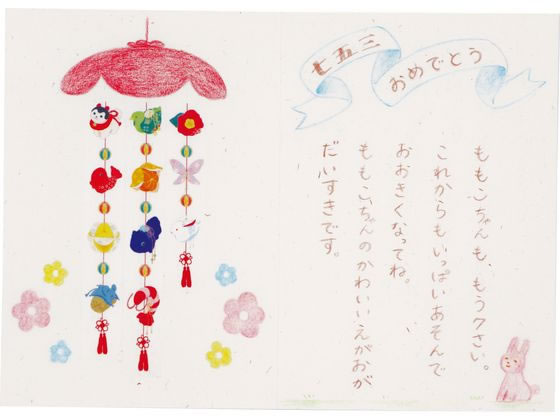 七五三
おめでとう
ももこちゃんも、もう7さい。
これからもいっぱいあそんで
おおきくなってね。
ももこちゃんのかわいいえがおが
だいすきです。